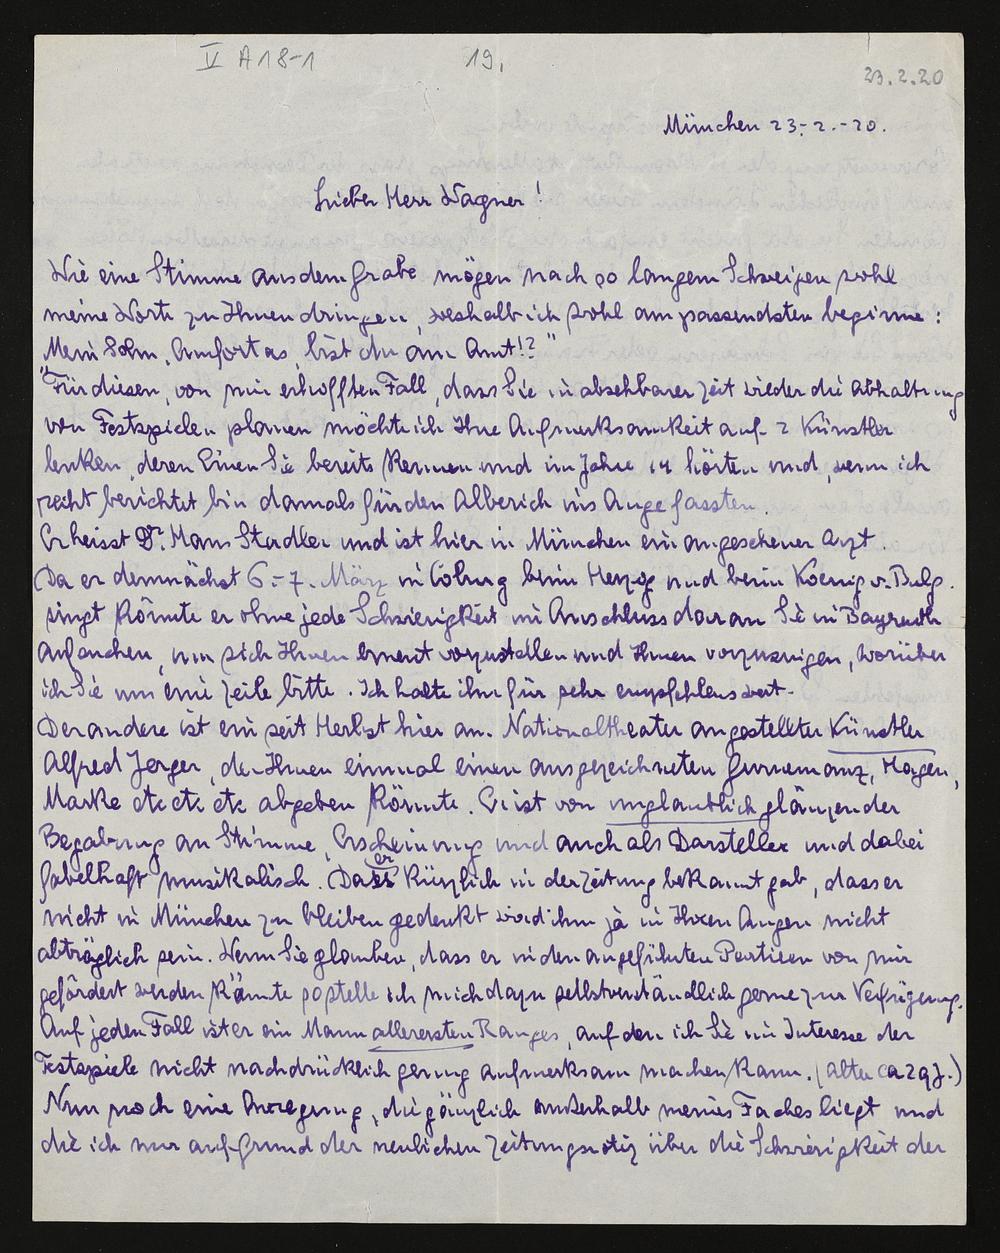 V A 18-1 19, 23.2.20
München 23.-2.-20.
Lieber Herr Wagner!
Wie eine Stimme aus dem Grabe mögen nach so langem Schweigen wohl
meine Worte zu Ihnen dringen, weshalb ich wohl am passendsten beginne:
„Mein Sohn, Amfortas, bist du am Amt!?"
Für diesen, von mir erhofften Fall, dass Sie in absehbarer Zeit wieder die Abhaltung
von Festspielen planen möchte ich Ihre Aufmerksamkeit auf 2 Künstler
lenken, deren Einen Sie bereits kennen und im Jahre 14 hörten und, wenn ich
recht berichtet bin damals für den Alberich ins Auge fassten.
Er heisst Dr. Hans Stadler und ist hier in München ein angesehener Arzt.
Da er demnächst 6.-7. März in Coburg beim Herzog und beim Koenig v. Bulg.
singt könnte er ohne jede Schwierigkeit im Anschluss daran Sie in Bayreuth
aufsuchen, um sich Ihnen erneut vorzustellen und Ihnen vorzusingen, worüber
ich Sie um eine Zeile bitte. Ich halte ihn für sehr empfehlenswert.-
Der andere ist ein seit Herbst hier am Nationaltheater angestellter Künstler
Alfred Jerger, der Ihnen einmal einen ausgezeichneten Gurnemanz, Hagen,
Marke etc etc etc abgeben könnte. Er ist von unglaublich glänzender
Begabung an Stimme, Erscheinung und auch als Darsteller und dabei
fabelhaft musikalisch. Dass er kürzlich in der Zeitung bekannt gab, dass er
nicht in München zu bleiben gedenkt wird ihm ja in Ihren Augen nicht
abträglich sein. Wenn Sie glauben, dass er in den angeführten Partieen von mir
gefördert werden könnte so stelle ich mich dazu selbstverständlich gerne zur Verfügung.
Auf jeden Fall ist er ein Mann allerersten Ranges, auf den ich Sie im Interesse der
Festspiele nicht nachdrücklich genug aufmerksam machen kann. (alter ca 29 J.)
Nun noch eine Anregung, die gänzlich außerhalb meines Faches liegt und
die ich nur auf Grund der neulichen Zeitungsnotiz über die Schwierigkeit der